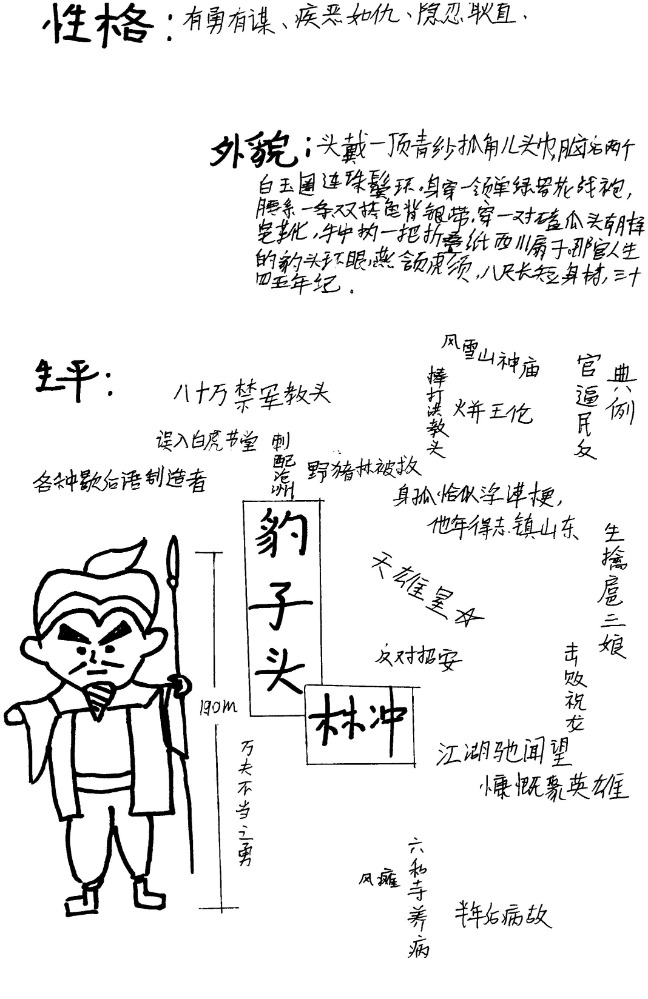 性格:有勇有谋、疾恶如仇、隐忍耿直.
外貌:头戴一顶青纱抓角儿头巾,脑后两个
白玉圈连珠鬓环.身穿一领单绿罗花战袍,
腰系一条双搭尾背银带,穿一对磕瓜头朝样
皂靴,手中执一把折叠纸西川扇子.那官人生
的豹头环眼,燕颔虎须,八尺长短身材,三十
四五年纪.
生平:
八十万禁军教头
误入白虎书堂
刺配沧州
野猪林被救
风雪山神庙
棒打洪教头
火并王伦
官逼民反
典例
各种歇后语制造者
身孤恰似浮萍梗,
他年得志镇山东
豹子头
林冲
天雄星☆
反对招安
生擒扈三娘
击败祝龙
190m
万夫不当之勇
江湖驰闻望
慷慨聚英雄
风瘫
六和寺养病
半年后病故